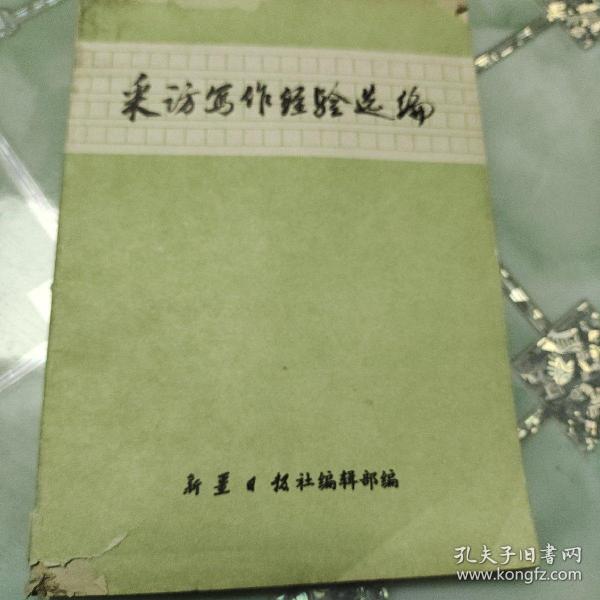 采访写作经验选编
新畺日报社编辑部编
孔夫子旧书网
www.kongfz.com